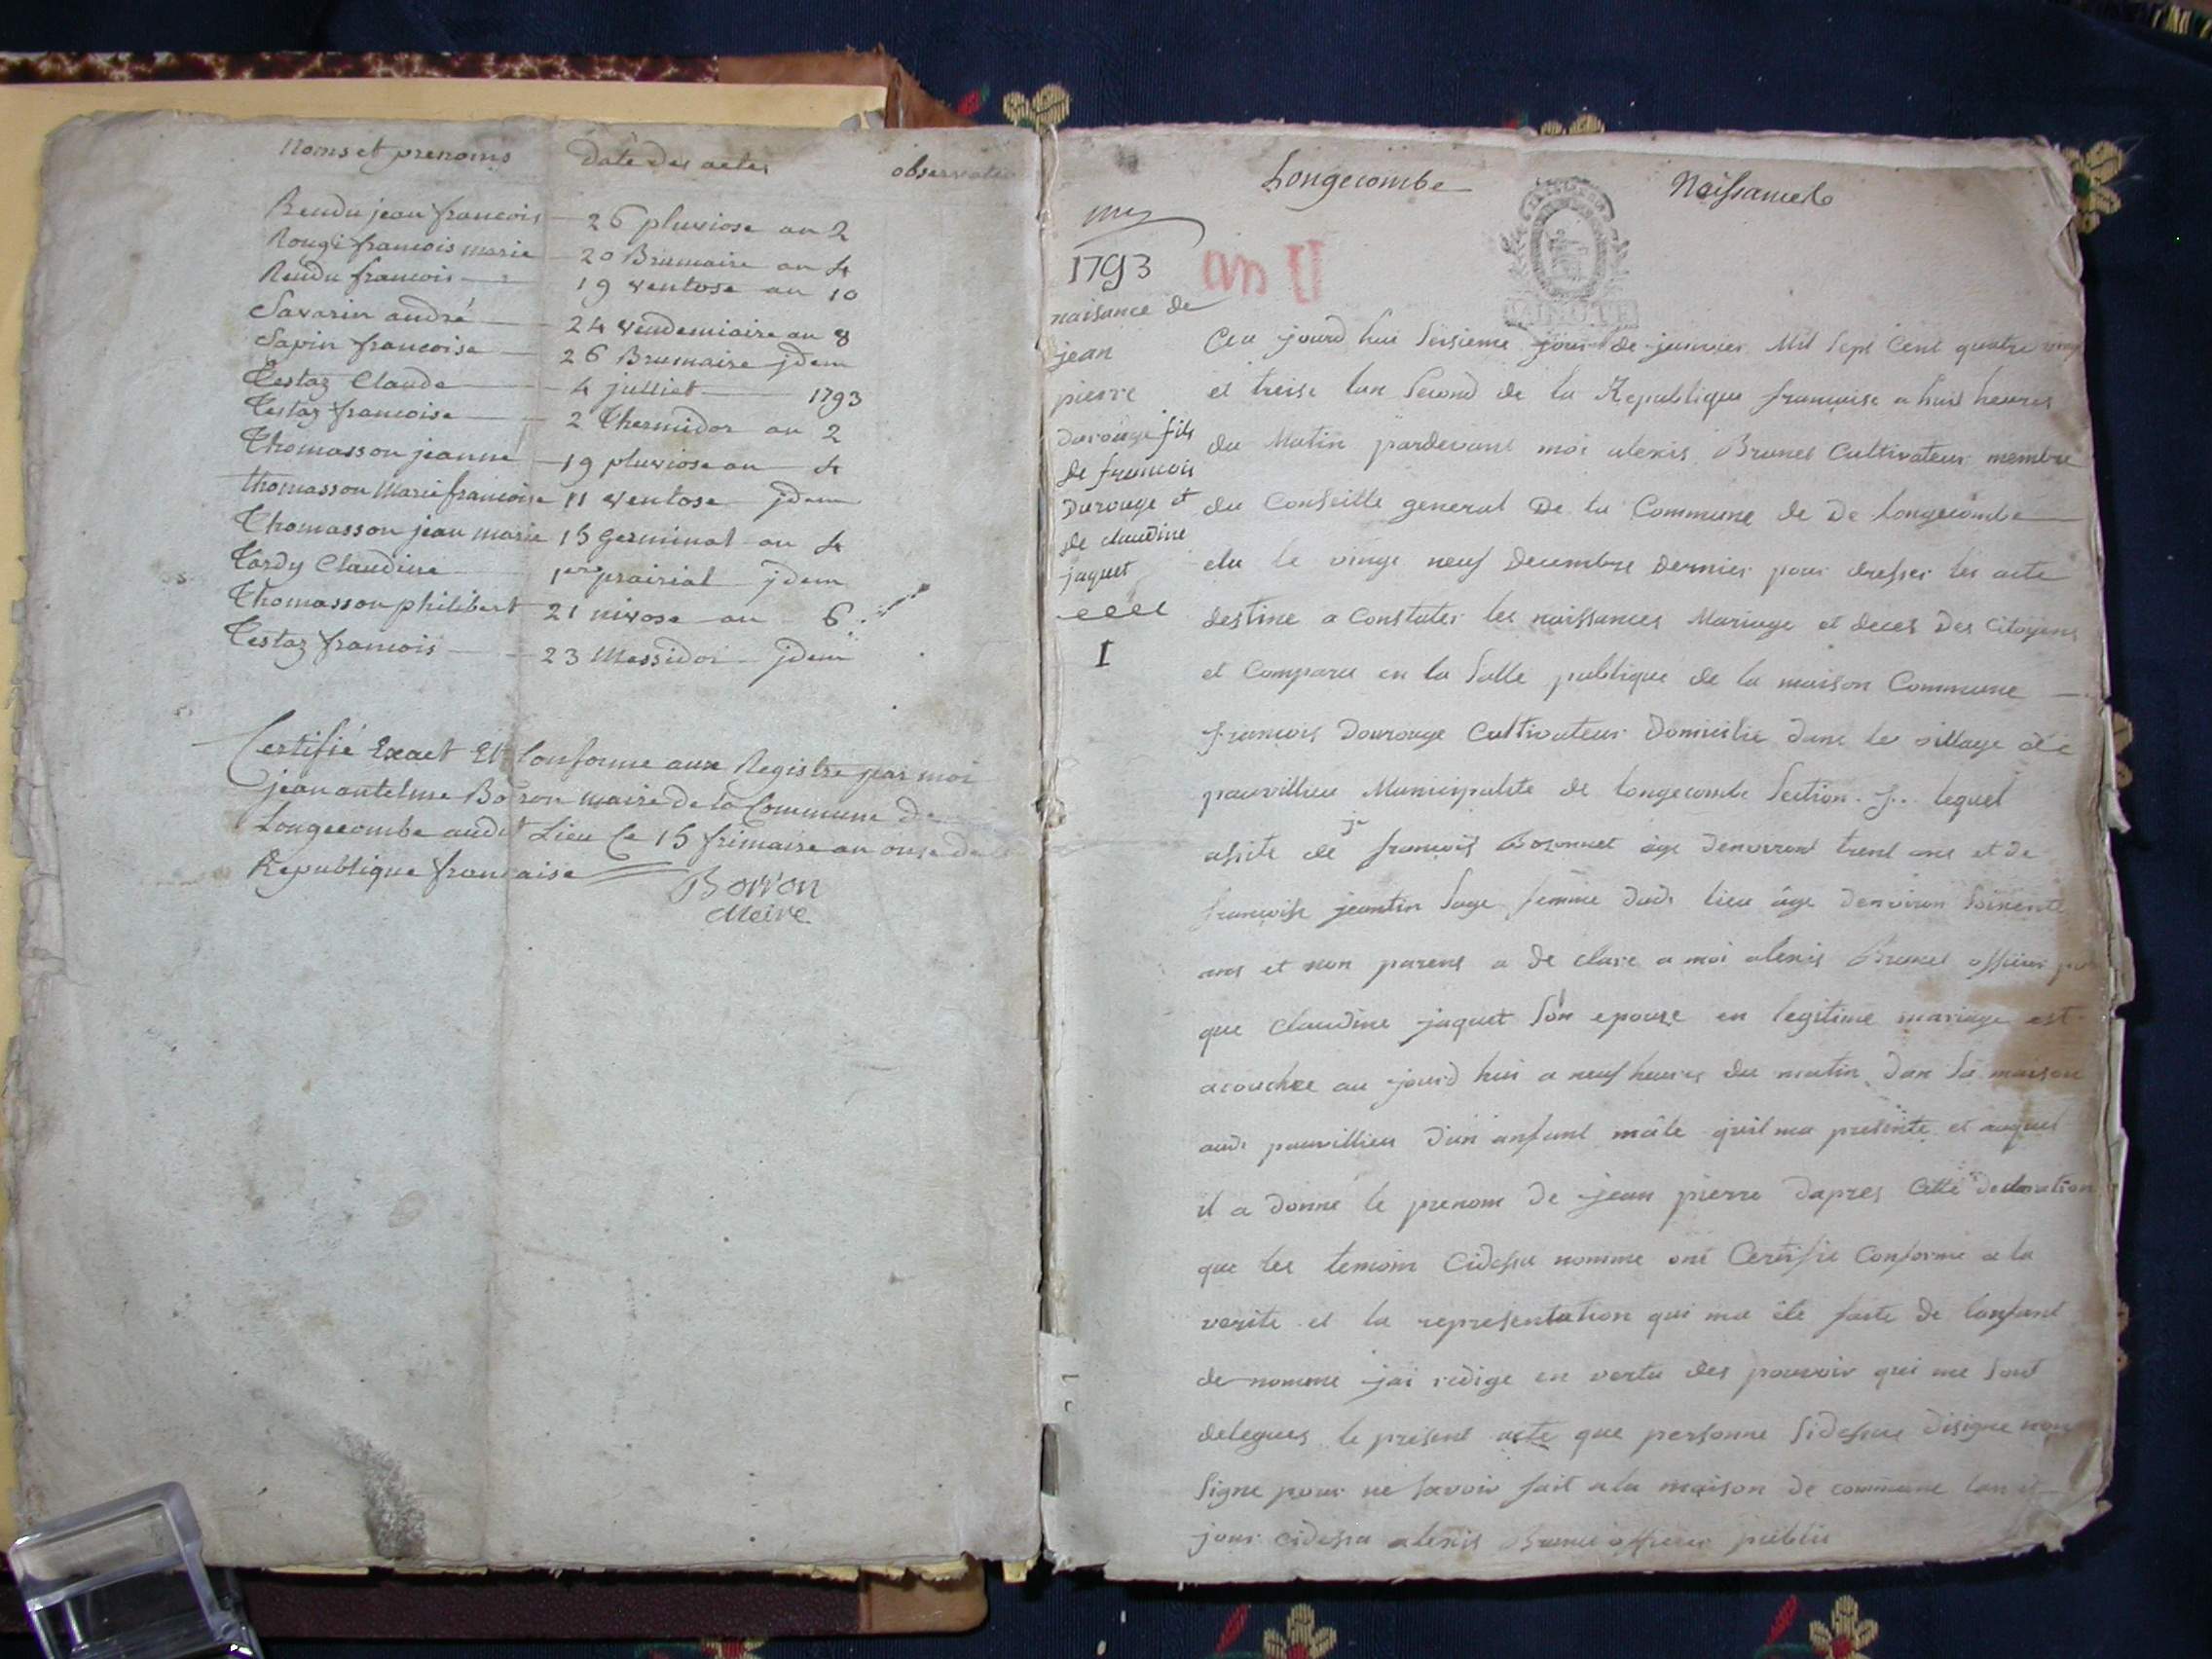 Noms et prenoms date des actes observatio
Rendu jean francois 26 pluviose an 2
Rougi francois marie 20 Brumaire an 4
Rendu francois 19 ventose an 10
Savarin andré 24 vendemiaire an 8
Sapin francoise 26 Brumaire jdem
Testaz Claude 4 julliet 1793
Testaz francoise 2 Thermidor an 2
Thomasson jeanne 19 pluviose an 4
thomasson Marie francoise 11 ventose jdem
Thomasson jean marie 15 Germinal an 4
Tardy Claudine 1er prairial jdem
Thomasson philibert 21 nivose an 6
Testaz francois 23 Messidor jdem
Certifié Exact Et Conforme aux Registre par moi
jean antelme Borron maire de la Commune de
Longecombe audit Lieu le 15 frimaire an onse de
Republique francaise
Borron
Meire
Longecombe Naissance
1793
an II
MINUTE
naisance de
jean
pierre
durouge fils
de francois
Durouge et
de claudine
jaquet
I
Ceu jourd hui seisieme jour de janvier Mil sept Cent quatre ving
et treise lan second de la Republique francaise a huit heures
du Matin pardevant moi alexis Brunet Cultivateur membre
du Conseille general De la Commune de De Longecombe
elu le vinge neuf decembre dernier pour dresser les acte
destine a Constater les naissances Mariage et deces Des Citoyens
et Comparu en la Salle publique de la maison Commune
francois Dourouge Cultivateur Domicilie dans le village de
pauvillieu Municipalite de longecombe Section lequel
asite de francois Bozonnet age denviron trent ans et de
francoise jeantin Sage femme dudi lieu âge denviron soixente
ans et non parens a de clare a moi alexis Brunet officier
que Claudine jaquet Son epouse en legitime mariage est
acouchee au jourd hui a neuf heures du matin dan sa maison
audi pauvillieu d'un anfant mâle quil ma presente et auquel
il a donné le prenom de jean pierre dapres Cette declaration
que les temoin Cidessu nomme ont Certifie Conforme a la
verite et la representation qui ma ete faite de lanfant
de nomme jai redige en vertu des pouvoir qui me sont
delegues le present acte que personne Sidessus disigne non
Signe pour ne savoir fait a la maison de commune lan et
jour cidessu alexis Brunet officier public